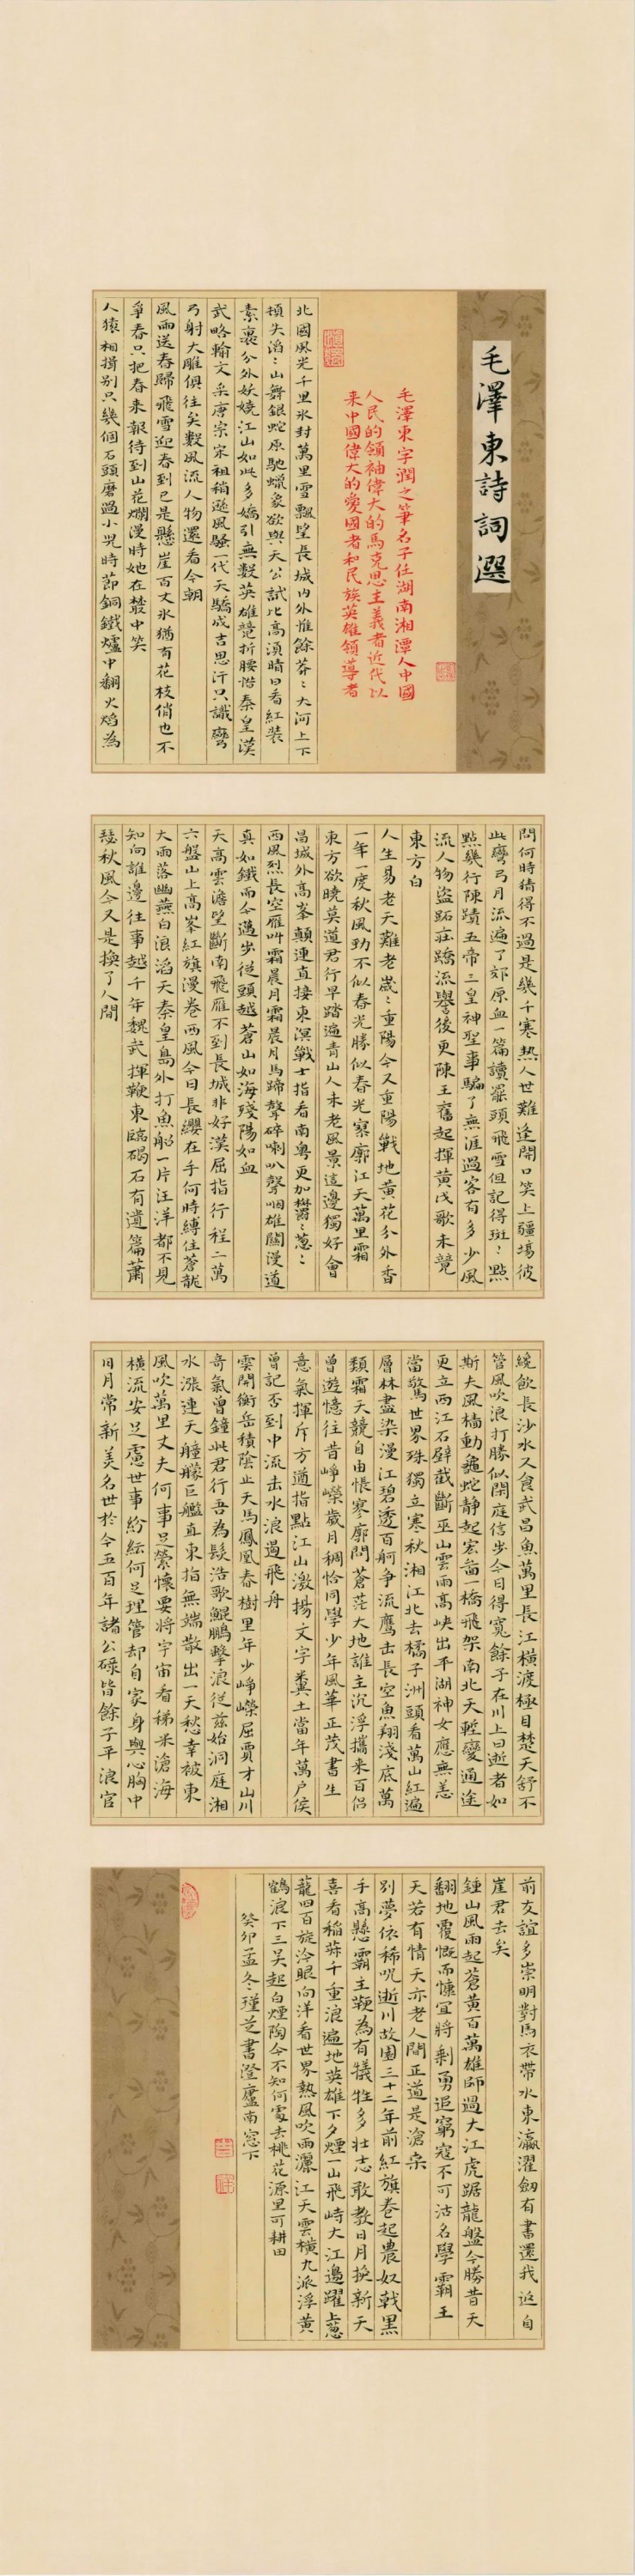 毛澤東詩詞選
毛澤東字潤之筆名子任湖南湘潭人中國
人民的領袖偉大的馬克思主義者近代以
来中國偉大的愛國者和民族英雄領導者
北國風光千里氷封萬里雪飄望長城内外惟餘莽〻大河上下
頓失滔〻山舞銀蛇原馳蠟象欲與天公試比高須晴日看紅裝
素裹分外妖嬈江山如此多嬌引無數英雄競折腰惜秦皇漢
武略輸文采唐宗宋祖稍遜風騷一代天驕成吉思汗只識彎
弓射大雕俱往矣數風流人物還看今朝
風雨送春歸飛雪迎春到已是懸崖百丈氷猶有花枝俏也不
爭春只把春来報待到山花爛漫時她在叢中笑
人猿相揖别只幾個石頭磨過小児時節銅鐵爐中翻火焰為
問何時猜得不過是幾千寒熱人世難逢開口笑上疆場彼
此彎弓月流遍了郊原血一篇讀罷頭飛雪但記得斑〻點
點幾行陳蹟五帝三皇神聖事騙了無涯過客有多少風
流人物盗跖莊蹻流譽後更陳王奮起揮黄戉歌未竟
東方白
人生易老天難老歲〻重陽今又重陽戰地黄花分外香
一年一度秋風勁不似春光勝似春光寥廓江天萬里霜
東方欲曉莫道君行早踏遍青山人未老風景這邊獨好會
昌城外高峯顛連直接東溟戰士指看南粤更加鬱〻葱〻
西風烈長空雁叫霜晨月霜晨月馬蹄聲碎喇叭聲咽雄關漫道
真如鐵而今邁步從頭越蒼山如海殘陽如血
天高雲澹望斷南飛雁不到長城非好漢屈指行程二萬
六盤山上高峯紅旗漫卷西風今日長纓在手何時縛住蒼龍
大雨落幽燕白浪滔天秦皇島外打魚船一片汪洋都不見
知向誰邊往事越千年魏武揮鞭東臨碣石有遺篇蕭
瑟秋風今又是換了人間
纔飲長沙水又食武昌魚萬里長江橫渡極目楚天舒不
管風吹浪打勝似閑庭信步今日得寬餘子在川上曰逝者如
斯夫風檣動龜蛇静起宏啚一橋飛架南北天塹變通途
更立西江石壁截斷巫山雲雨高峽出平湖神女應無恙
當驚世界殊獨立寒秋湘江北去橘子洲頭看萬山紅遍
層林盡染漫江碧透百舸争流鷹击長空魚翔淺底萬
類霜天競自由悵寥廓問蒼茫大地誰主沉浮攜来百侣
曾遊憶往昔崢嶸歲月稠恰同學少年風華正茂書生
意氣揮斥方遒指點江山激揚文字糞土當年萬户侯
曾記否到中流击水浪遏飛舟
雲開衡岳積陰止天馬鳳凰春樹里年少崢嶸屈賈才山川
奇氣曾鐘此君行吾為髮浩歌鯤鵬擊浪從兹始洞庭湘
水漲連天艟艨巨艦直東指無端散出一天愁幸被東
風吹萬里丈夫何事足縈懷要將宇宙看稊米滄海
橫流安足慮世事紛紜何足理管却自家身與心胸中
日月常新美名世於今五百年諸公碌皆餘子平浪宫
前友誼多崇明對馬衣帶水東瀛濯劔有書還我返自
崖君去矣
鍾山風雨起蒼黄百萬雄師過大江虎踞龍盤今勝昔天
翻地覆慨而慷宜將剩勇追窮寇不可沽名學霸王
天若有情天亦老人間正道是滄桑
别夢依稀咒逝川故園三十二年前紅旗卷起農奴戟黑
手高懸霸主鞭為有犧牲多壮志敢教日月換新天
喜看稲菽千重浪遍地英雄下夕煙一山飛峙大江邊躍上葱
蘢四百旋冷眼向洋看世界熱風吹雨灑江天雲橫九派浮黄
鶴浪下三吴起白煙陶令不知何處去桃花源里可耕田
癸卯孟冬瑾芝書澄廬南窓下